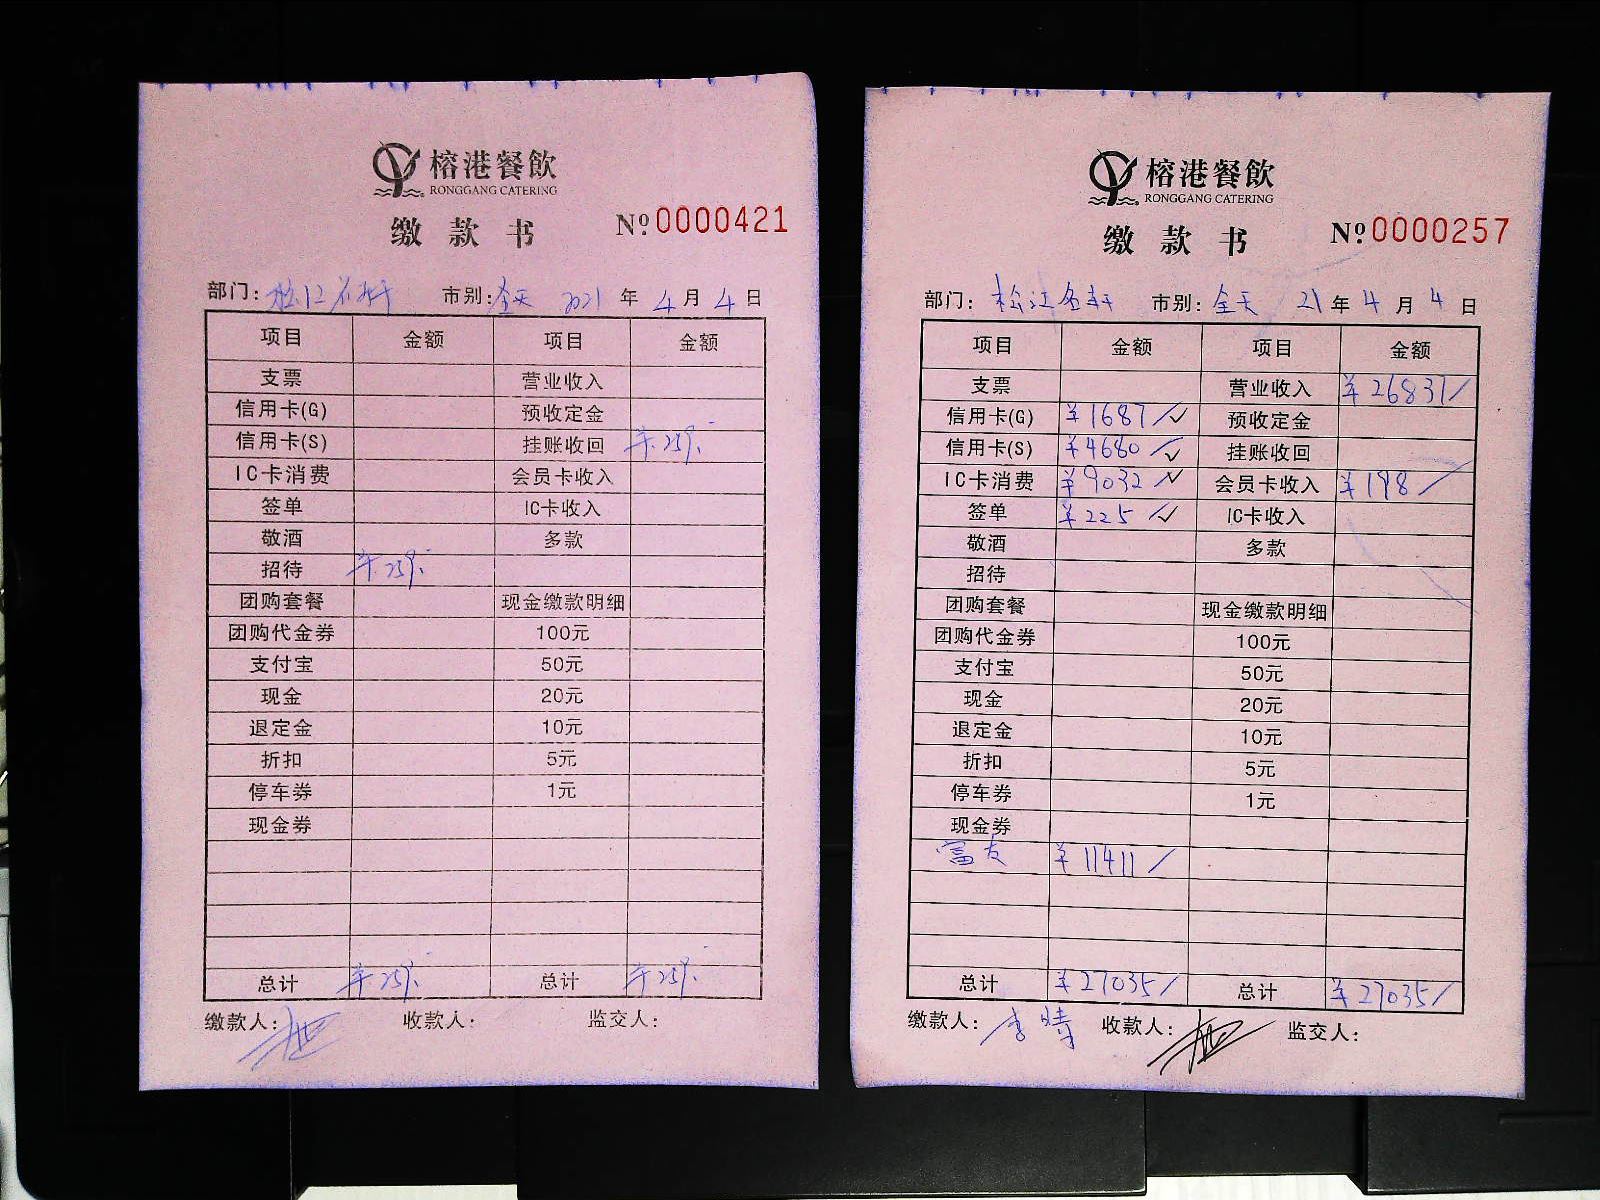 榕港餐飲
RONGGANG CATERING
缴款书 №0000421
部门: 市别:全天 2021年4月4日
项目 金额 项目 金额
支票 营业收入
信用卡(G) 预收定金
信用卡(S) 挂账收回 ¥259.-
IC卡消费 会员卡收入
签单 IC卡收入
敬酒 多款
招待 ¥259.-
团购套餐 现金缴款明细
团购代金券 100元
支付宝 50元
现金 20元
退定金 10元
折扣 5元
停车券 1元
现金券
总计 ¥259.- 总计 ¥259.-
缴款人: 收款人: 监交人:
榕港餐飲
RONGGANG CATERING
缴款书 №0000257
部门:松江 市别:全天 21年4月4日
项目 金额 项目 金额
支票 营业收入 ¥26837/
信用卡(G) ¥1687/✓ 预收定金
信用卡(S) ¥4680/✓ 挂账收回
IC卡消费 ¥9032✓ 会员卡收入 ¥198/
签单 ¥225✓ IC卡收入
敬酒 多款
招待
团购套餐 现金缴款明细
团购代金券 100元
支付宝 50元
现金 20元
退定金 10元
折扣 5元
停车券 1元
现金券
富友 ¥11411/
总计 ¥27035/ 总计 ¥27035/
缴款人:李晴 收款人: 监交人: